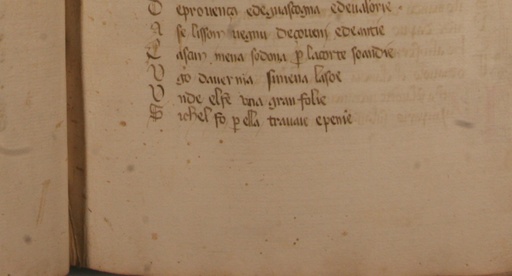 D eprouenca edeguascogna edeualorie.
A se lisson uegnu decoueni edeantie
C ascun mena sodona p̱ lacorte seandre
V go dauernia simena lasoe
V nde elfe una gran folie
S ichel fo p̱ ella trauaie epenie